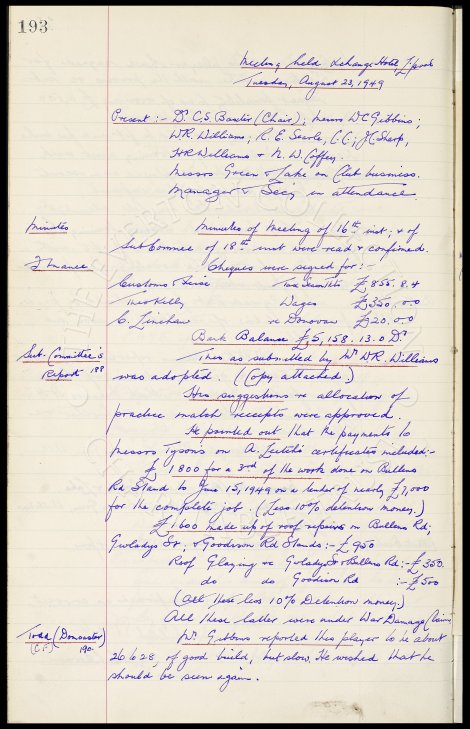 193
Meeting held Exchange Hotel L'pool
Tuesday, August 23, 1949
Present :- Dr. C.S. Baxter (Chair); Messrs W.C. Gibbins;
W.R. Williams, R.E. Searle, C.C.; J.C. Sharp,
H.R. Williams & N.W. Coffey.
Messrs Green & Lake on Club business.
Manager & Secy in attendance.
Minutes
Minutes of Meeting of 16th inst; & of
Sub Commee of 18th inst were read & confirmed.
Finance
Cheques were signed for :-
Customs & Excise £855. 8. 4
Theo Kelly Wages £350. 0. 0
C. re Donovan £20. 0. 0
Bank Balance £5,158. 13. 0 Dr
Sub. Committee's
Report 188
This as submitted by Mr W.R. Williams
was adopted. (Copy attached.)
His suggestions re allocation of
practice match receipts were approved.
He pointed out that the payments to
Messrs Tysons on A. Leitch's certificates included:-
£1800 for a 3rd of the work done on Bullens
Rd Stand to June 15, 1949 on a tender of nearly £7,000
for the complete job. (Less 10% detention money.)
£1600 made up of roof repairs on Bullens Rd;
Gwladys St; & Goodison Rd Stands :- £950
Roof Glazing re Gwladys St & Bullens Rd :- £350.
do do Goodison Rd :- £500
(All these less 10% Detention money)
All these latter were under War Damage Claim
Todd (Doncaster)
(C.F.) 190.
Mr. Gibbins reported this player to be about
26 to 28, of good build, but slow. He wished that he
should be seen again.